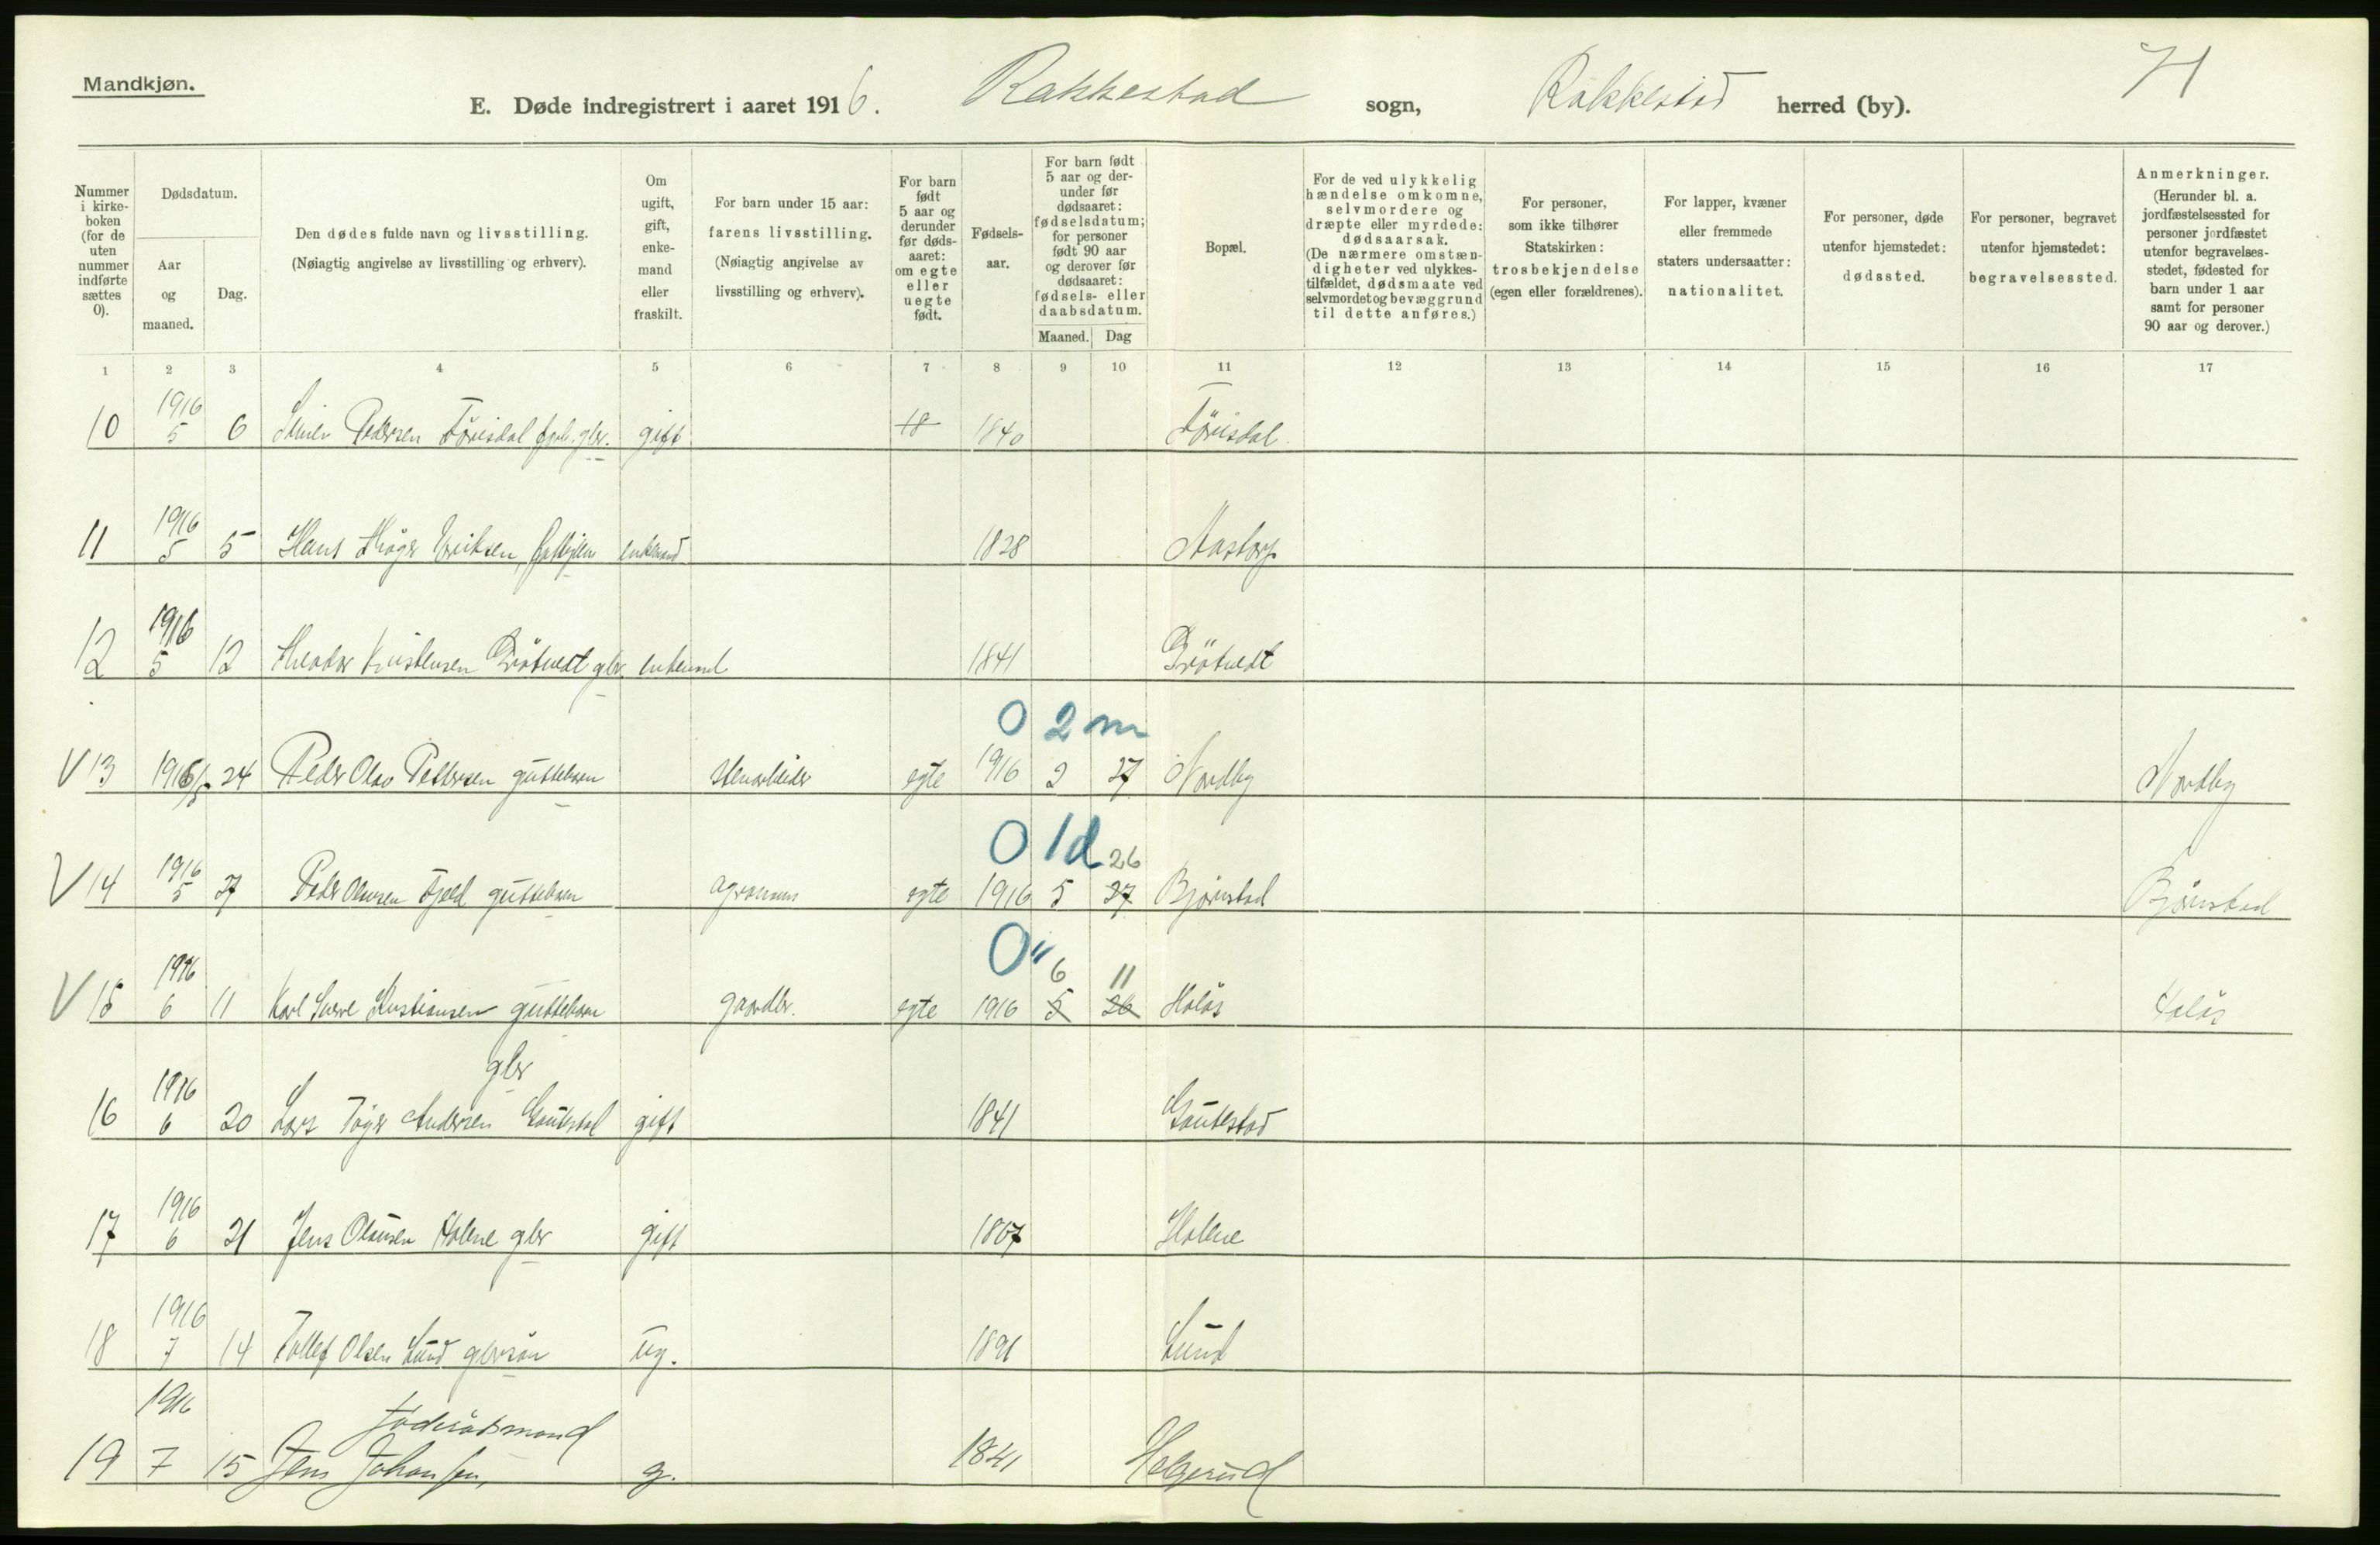 Mandkjøn.
71
E. Døde indregistrert i aaret 1916. Rakkestad sogn, Rakkestad herred (by).
Nummer i kirkeboken (for de uten nummer indførte sættes 0).
Dødsdatum.
Aar og maaned.
Dag.
Den dødes fulde navn og livsstilling.
(Nøiagtig angivelse av livsstilling og erhverv).
Om ugift, gift, enkemand eller fraskilt.
For barn under 15 aar: farens livsstilling.
(Nøiagtig angivelse av livsstilling og erhverv).
For barn født 5 aar og derunder før dødsaaret: om egte eller uegte født.
Fødselsaar.
For barn født 5 aar og derunder før dødsaaret: fødselsdatum; for personer født 90 aar og derover før dødsaaret: fødsels- eller daabsdatum.
Maaned. Dag
Bopæl.
For de ved ulykkelig hændelse omkomne, selvmordere og dræpte eller myrdede: dødsaarsak.
(De nærmere omstændigheter ved ulykkestilfældet, dødsmaate ved selvmordet og bevæggrund til dette anføres.)
For personer, som ikke tilhører Statskirken: trosbekjendelse (egen eller forældrenes).
For lapper, kvæner eller fremmede staters undersaatter: nationalitet.
For personer, døde utenfor hjemstedet: dødssted.
For personer, begravet utenfor hjemstedet: begravelsessted.
Anmerkninger.
(Herunder bl. a. jordfæstelsessted for personer jordfæstet utenfor begravelsesstedet, fødested for barn under 1 aar samt for personer 90 aar og derover.)
1 2 3 4 5 6 7 8 9 10 11 12 13 14 15 16 17
10 1916 5 6 Pedersen Törisdal gbr. gift 18 1840 Törisdal
11 1916 5 5 Hans Eriksen, enkemand 1828 Aastorp
12 1916 5 12 Theodor Kristensen Grötvedt gbr. enkemd 1841 Grötvedt
0 2 m
V 13 1916/5 24 Peder Olav Pettersen guttebarn stenarbeider egte 1916 2 27 Nordby Nordby
0 1d 26
V 14 1916 5 27 Peder Olausen Fjeld guttebarn agronom egte 1916 5 27 Björnstad Björnstad
0 " 6 11
V 15 1916 6 11 Karl Sverre Kristiansen guttebarn gaardbr. egte 1916 5 26 Holös Holös
gbr
16 1916 6 20 Lars Andersen Gautestad gift 1841 Gautestad
17 1916 6 21 Jens Olausen Holene gbr gift 1867 Holene
18 1916 7 14 Tollef Olsen Lund gbrsön ug. 1891 Lund
föderådsmand
19 1916 7 15 Jens Johansen, g. 1841 Helgerud